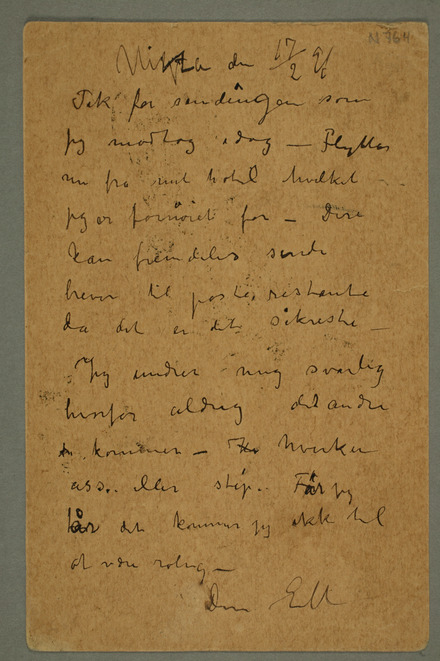 N 964
Nizza den 17/2 91
Tak for sendingen som
jeg modtog idag — Flytter
nu fra mit hotel hvilket
jeg er fornøiet for — Dere
kan fremdeles sende
brever til poste restante
da det er det sikreste —
Jeg undrer mig sværlig
hvorfor aldrig det andre
kommer — hverken
ass. eller stip. Før jeg
det kommer jeg ikke til
at være rolig —
Din